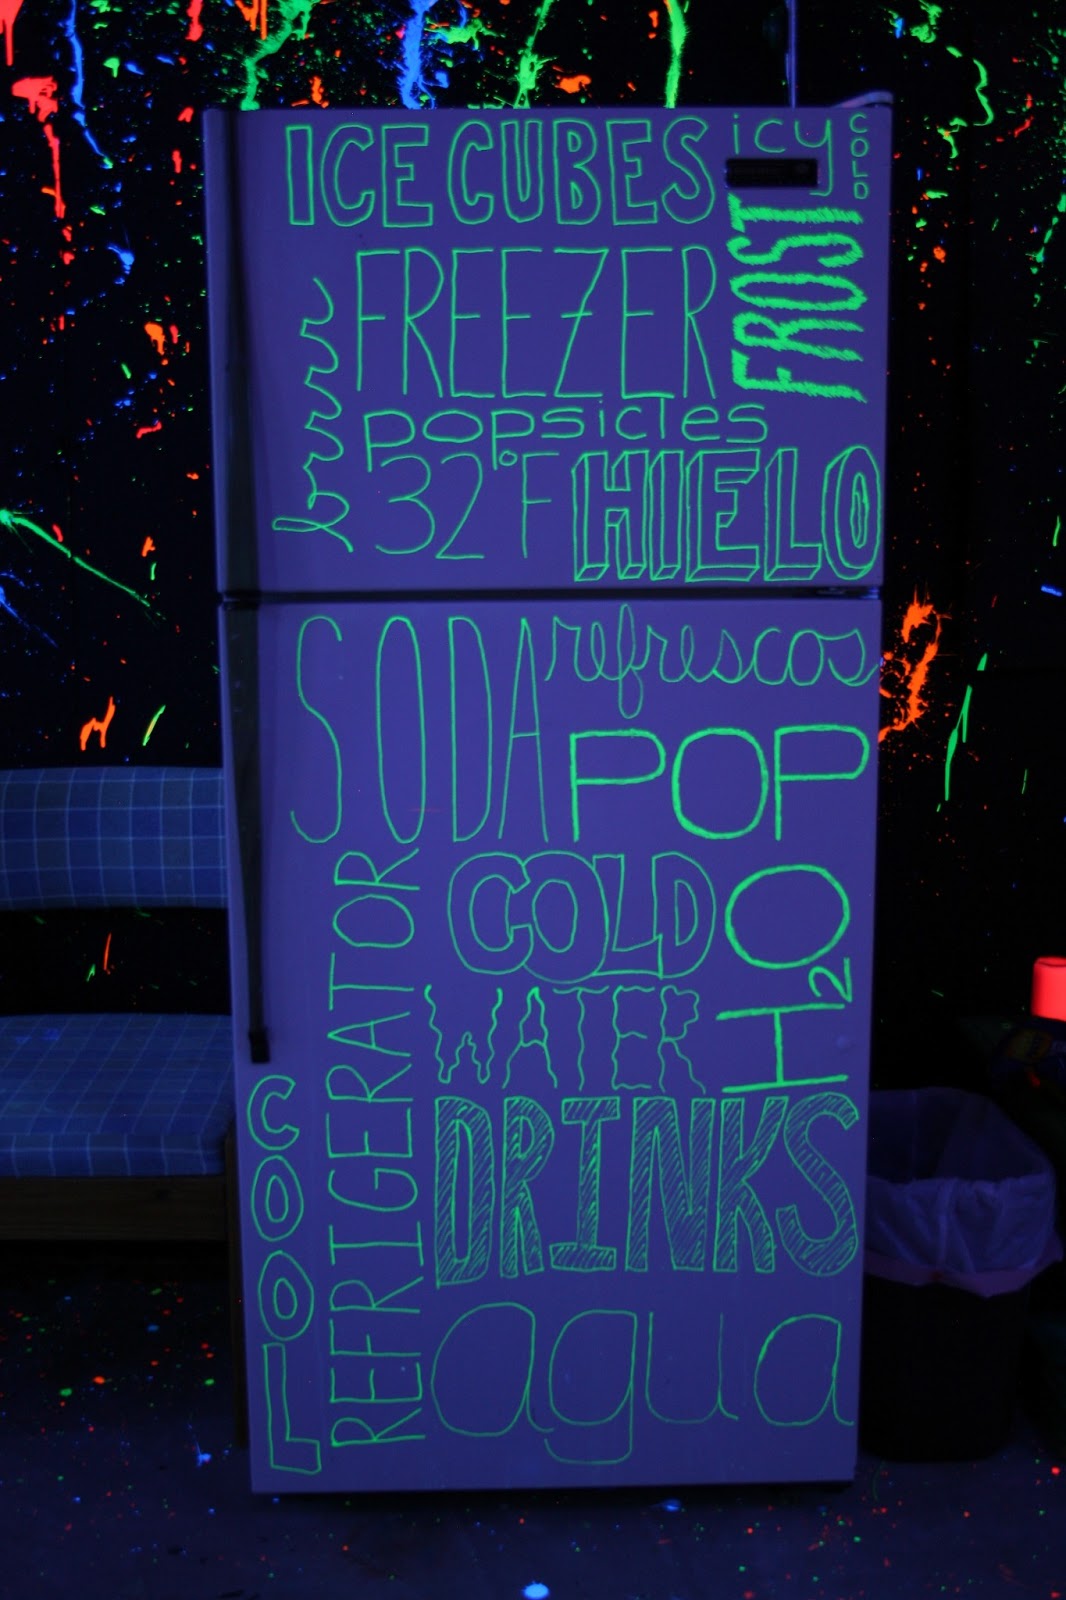 ICE CUBES
icy
COLD
FREEZER
FROST
brrrrr
popsicles
32°F
HIELO
SODA
refrescos
POP
REFRIGERATOR
COLD
H2O
WATER
COOL
DRINKS
agua